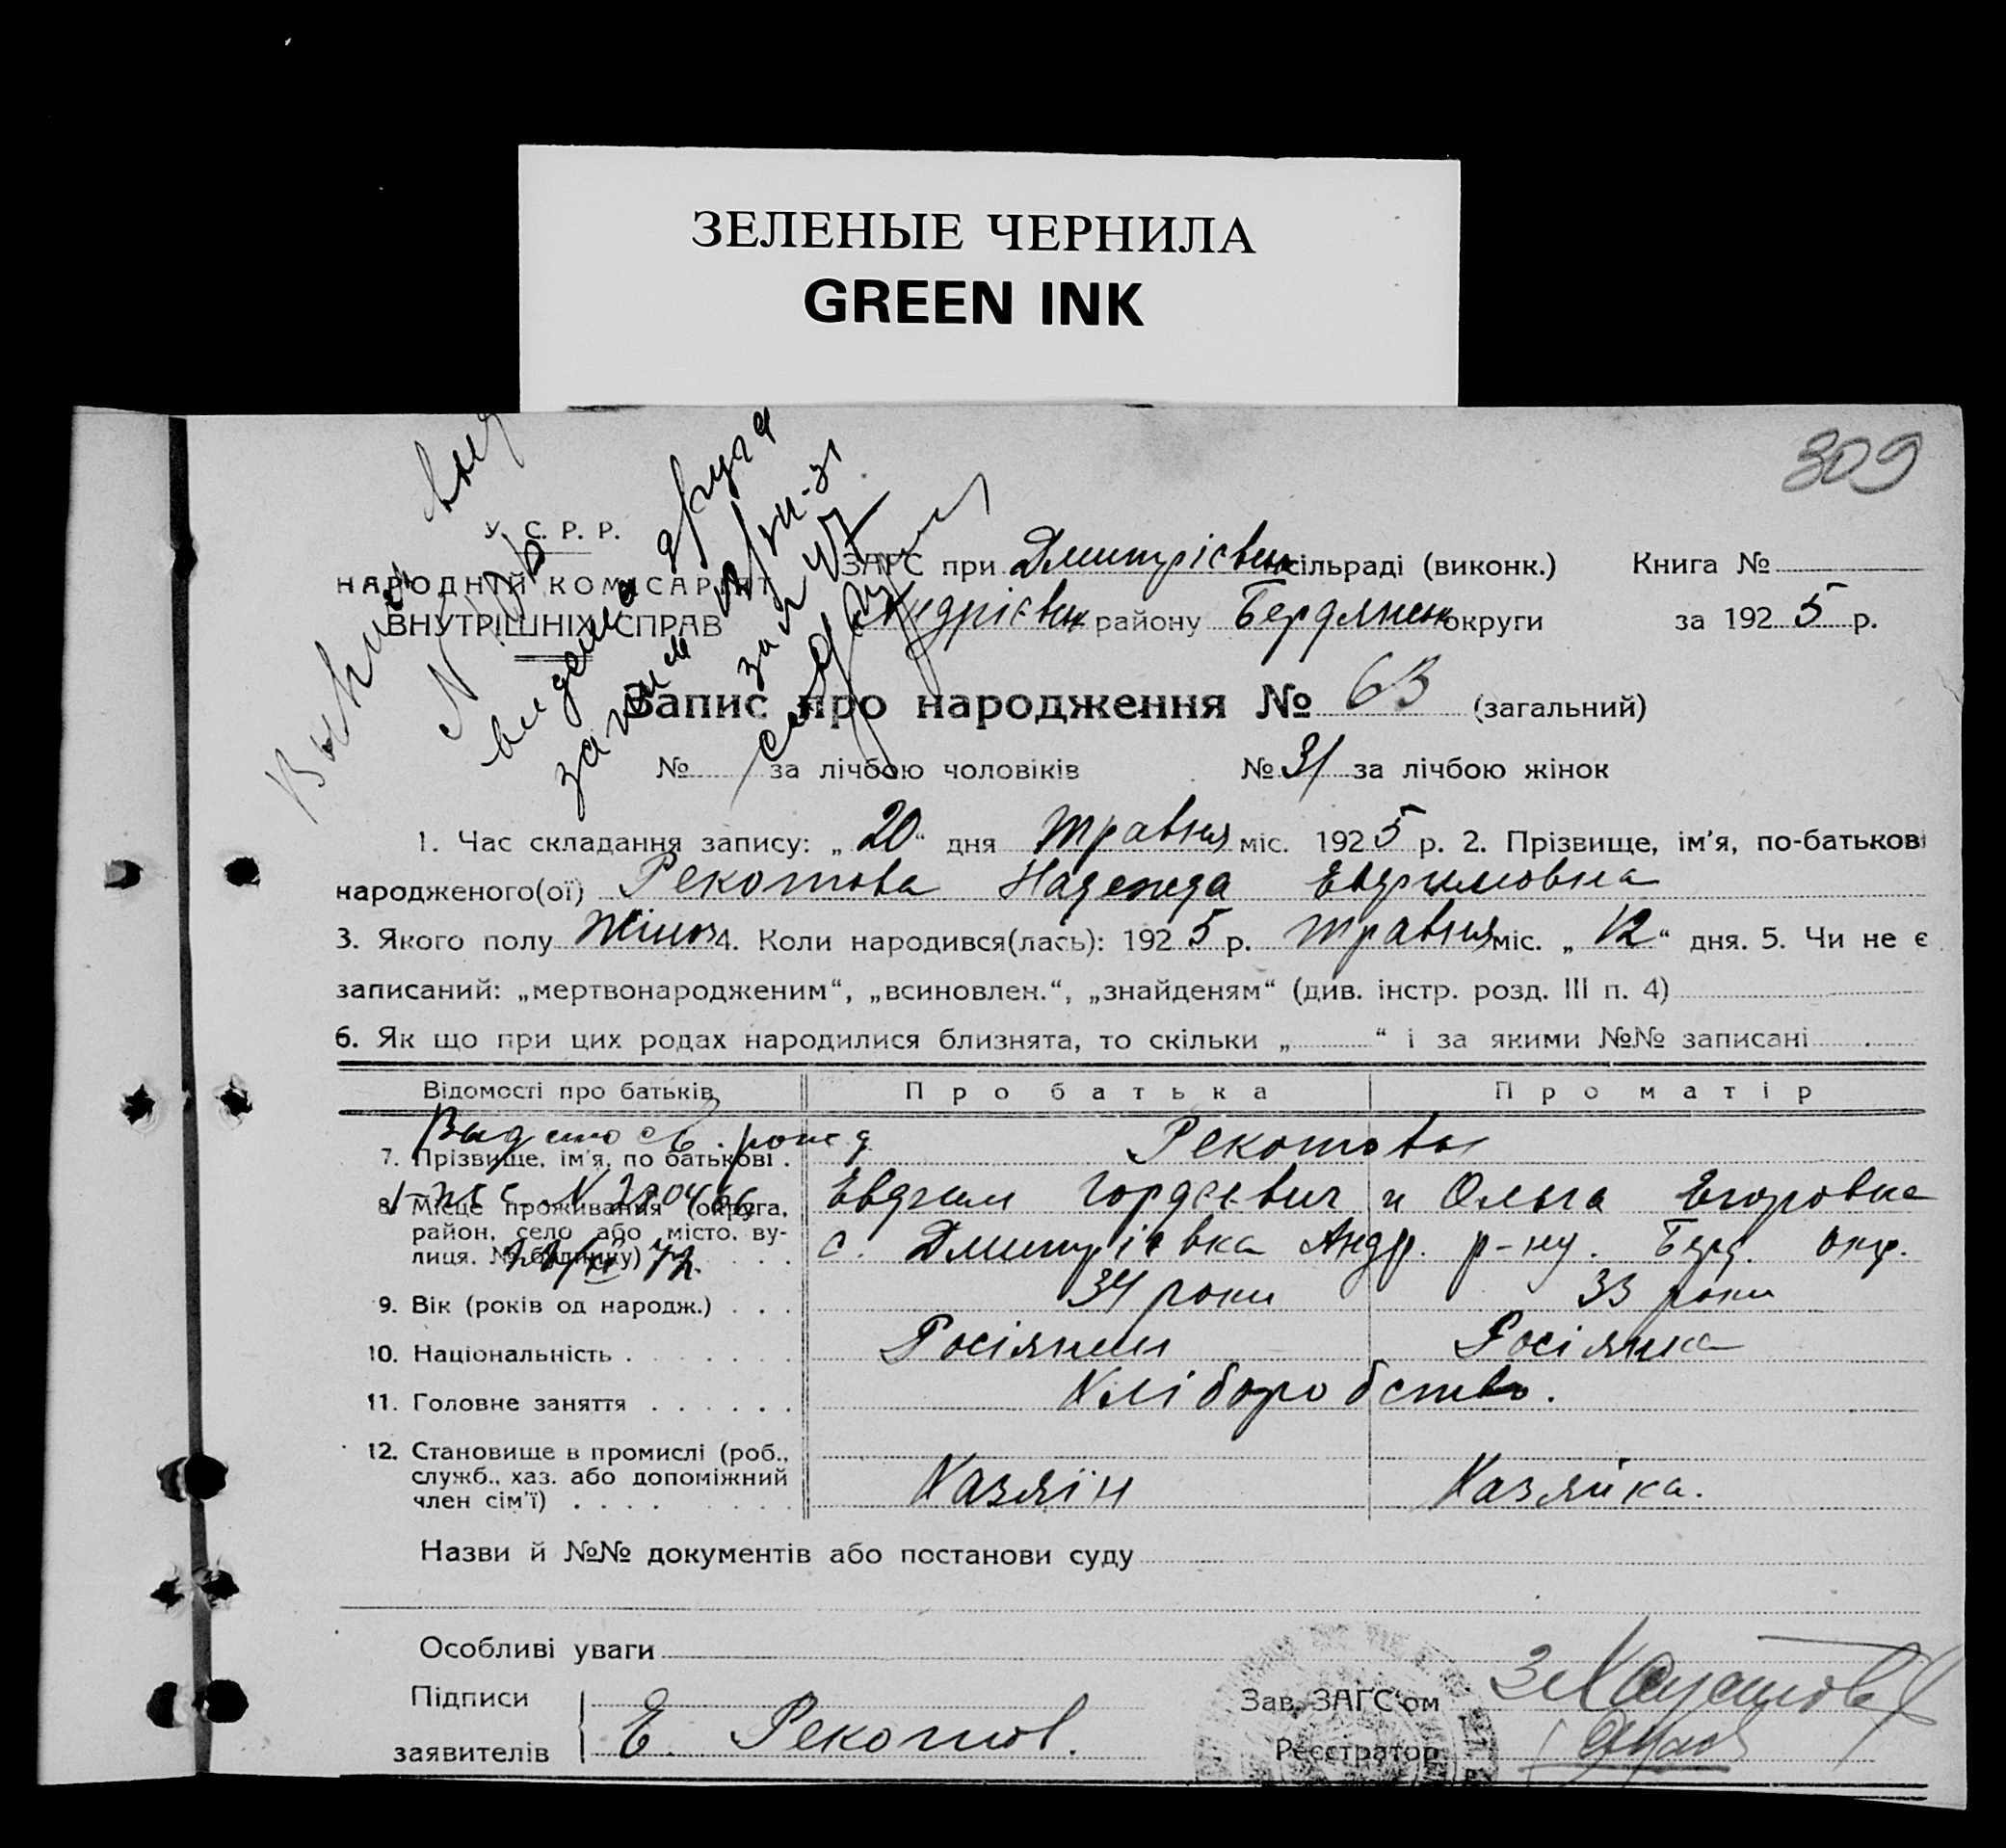 ЗЕЛЕНЫЕ ЧЕРНИЛА
GREEN INK
309
У. С. Р. Р.
НАРОДНІЙ КОМІСАРІЯТ
ВНУТРІШНІХ СПРАВ
ЗАГС при Дмитрієвск сільраді (виконк.) Книга №
Андрієвск району Бердянск округи за 1925 р.
видена друга
Запис про народження № 63 (загальний)
№ за лічбою чоловіків № 31 за лічбою жінок
1. Час складання запису: „20“ дня травня міс. 1925 р. 2. Прізвище, ім'я, по-батькові
народженого(ої) Рекотова Надежда Евдимовна
3. Якого полу жіноч 4. Коли народився(лась): 1925 р. травня міс. „12“ дня. 5. Чи не є
записаний: „мертвонародженим“, „всиновлен.“, „знайденям“ (див. інстр. розд. III п. 4)
6. Як що при цих родах народилися близнята, то скільки „ “ і за якими №№ записані
Відомості про батьків Про батька Про матір
7. Прізвище, ім'я, по батькові . Рекотовы
8. Місце проживання (округа, Евдким Гордєєвич и Ольга Егоровна
район, село або місто, ву-
лиця, № будинку) с. Дмитрієвка Андр. р-ну. Берд. окр.
9. Вік (років од народж.) . . . 34 роки 33 роки
10. Національність . . . . . . . Росіянин Росіянка
11. Головне заняття . . . . . . Хліборобство.
12. Становище в промислі (роб.,
служб., хаз. або допоміжний
член сім'ї) . . . . Хазяїн Хазяйка.
Назви й №№ документів або постанови суду
Особливі уваги
Підписи
заявителів Е. Рекотов.
Зав. ЗАГС'ом
Реєстратор